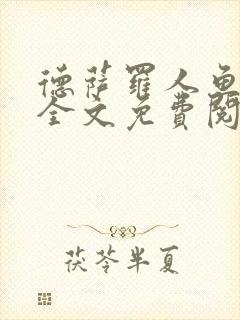 德萨罗人鱼
全文免费阅
茯苓半夏